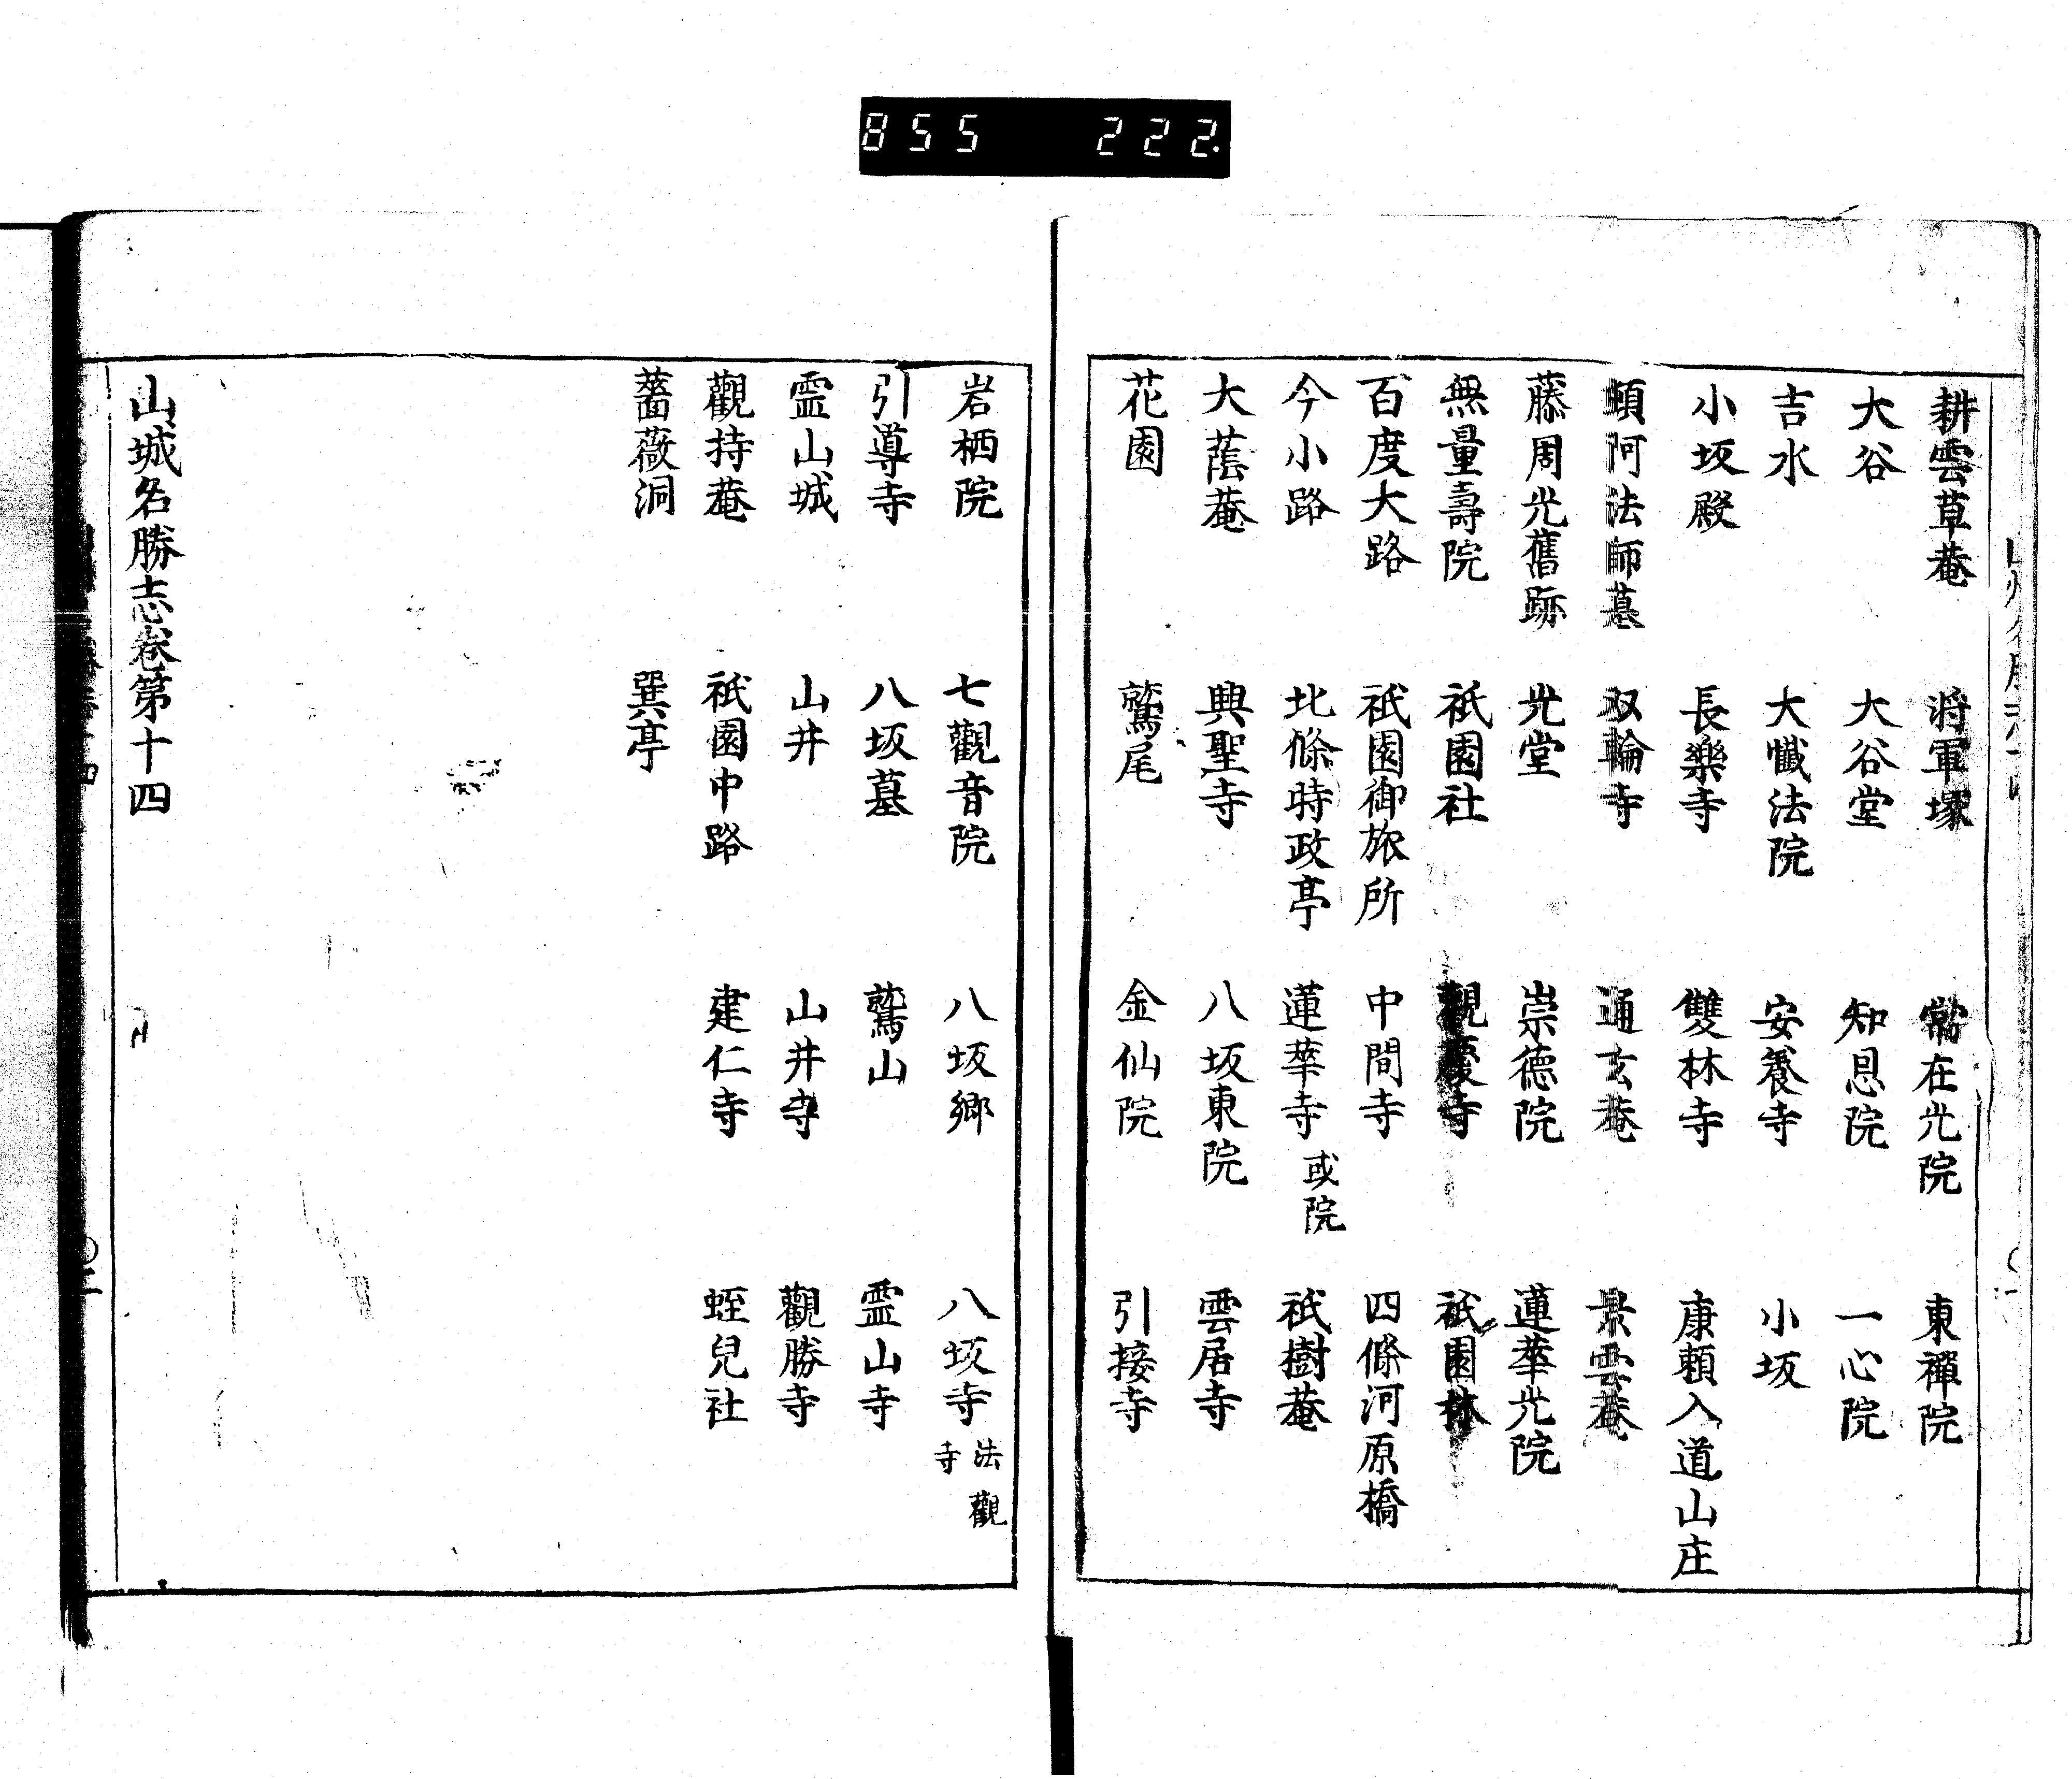 855 222
耕雲草菴 将軍塚 常在光院 東禪院
大谷 大谷堂 知恩院 一心院
吉水 大懺法院 安養寺 小坂
小坂殿 長樂寺 雙林寺 康頼入道山庄
頓阿法師墓 双輪寺 通玄菴 景雲菴
藤周光舊跡 光堂 崇德院 蓮華光院
無量壽院 祇園社 觀慶寺 祇園林
百度大路 祇園御旅所 中間寺 四條河原橋
今小路 北條時政亭 蓮華寺 或院 祇樹菴
大蔭菴 興聖寺 八坂東院 雲居寺
花園 鷲尾 金仙院 引接寺
岩栖院 七觀音院 八坂鄉 八坂寺 法觀寺
引導寺 八坂墓 鷲山 霊山寺
霊山城 山井 山井寺 觀勝寺
觀持菴 祇園中路 建仁寺 蛭兒社
薔薇洞 巽亭
山城名勝志卷第十四